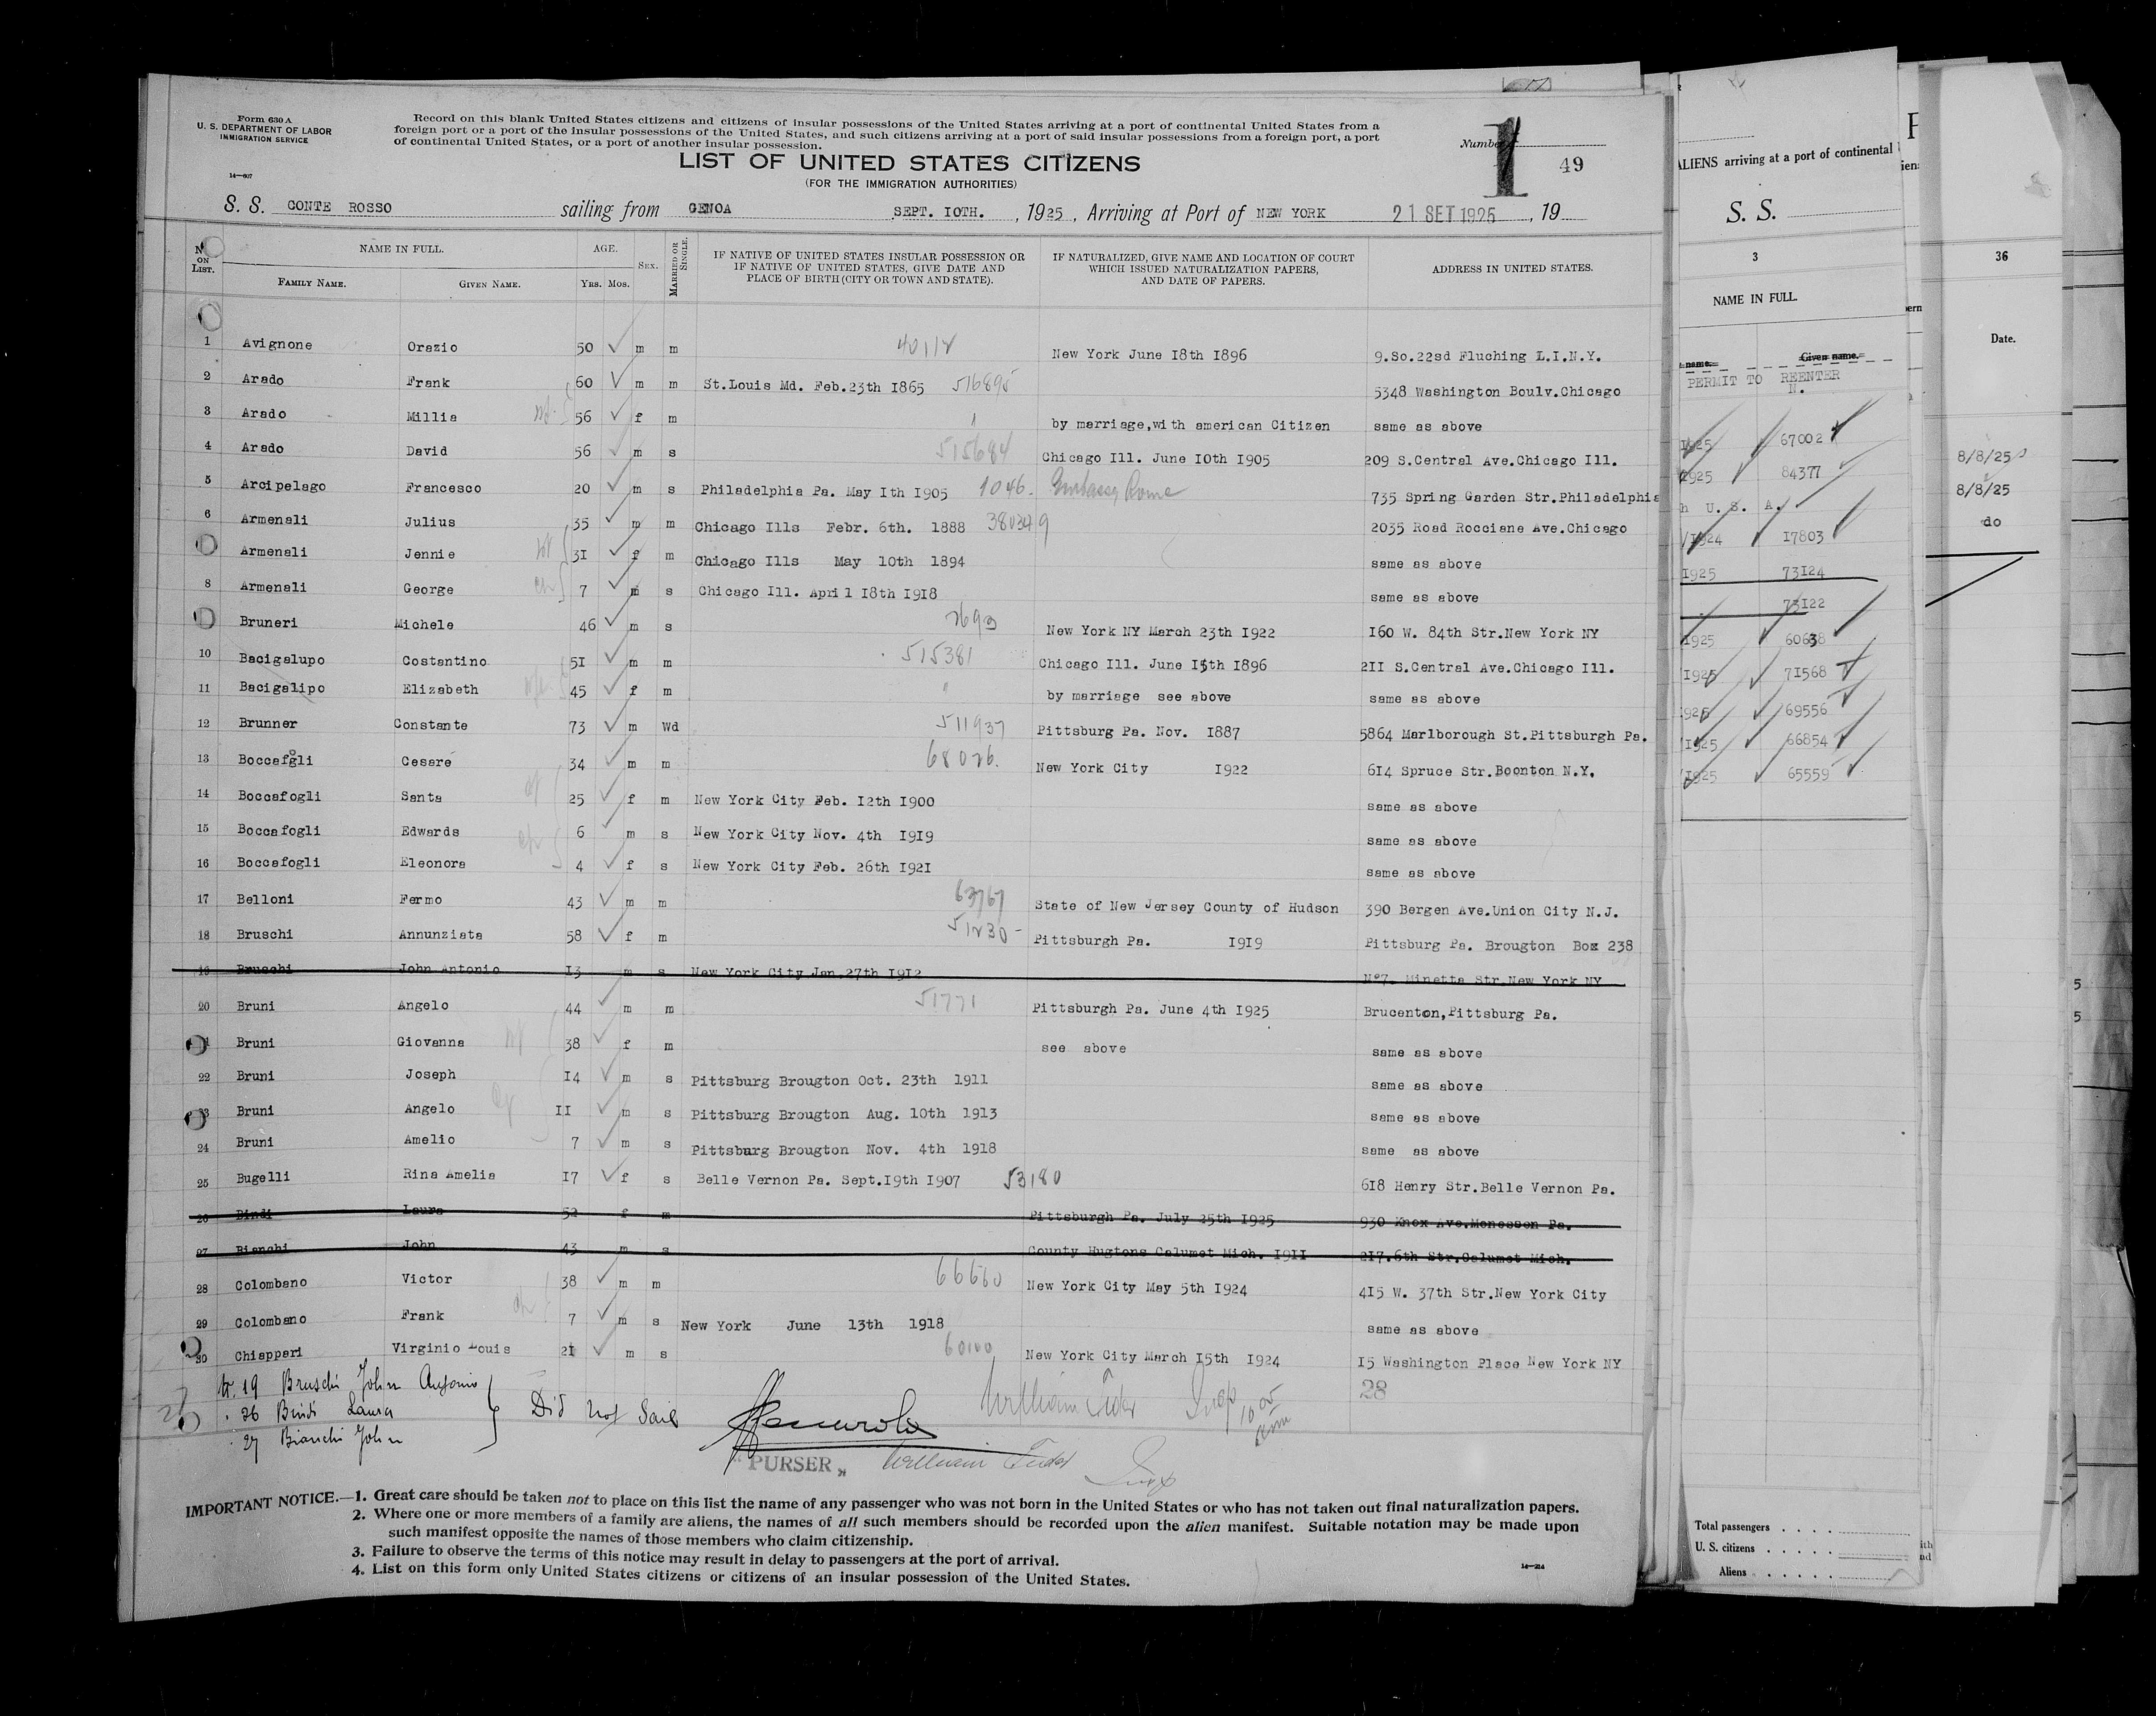 Form 630 A
U. S. DEPARTMENT OF LABOR
IMMIGRATION SERVICE
14—607
Record on this blank United States citizens and citizens of insular possessions of the United States arriving at a port of continental United States from a
foreign port or a port of the insular possessions of the United States, and such citizens arriving at a port of said insular possessions from a foreign port, a port
of continental United States, or a port of another insular possession.
Number 1 49
LIST OF UNITED STATES CITIZENS
(FOR THE IMMIGRATION AUTHORITIES)
S. S. CONTE ROSSO sailing from GENOA SEPT. IOTH. , 1925 , Arriving at Port of NEW YORK 21 SET 1925 , 19
No. ON LIST. NAME IN FULL. AGE. SEX. MARRIED OR SINGLE. IF NATIVE OF UNITED STATES INSULAR POSSESSION OR IF NATIVE OF UNITED STATES, GIVE DATE AND PLACE OF BIRTH (CITY OR TOWN AND STATE). IF NATURALIZED, GIVE NAME AND LOCATION OF COURT WHICH ISSUED NATURALIZATION PAPERS, AND DATE OF PAPERS. ADDRESS IN UNITED STATES.
FAMILY NAME. GIVEN NAME. YRS. MOS.
1 Avignone Orazio 50 m m New York June I8th I896 9.So.22sd Fluching L.I.N.Y.
2 Arado Frank 60 m m St.Louis Md. Feb.23th I865 516895 5348 Washington Boulv.Chicago
3 Arado Millia 56 f m by marriage,with american Citizen same as above
4 Arado David 56 m s 515684 Chicago Ill. June IOth I905 209 S.Central Ave.Chicago Ill.
5 Arcipelago Francesco 20 m s Philadelphia Pa. May Ith I905 1046. Embassy Rome 735 Spring Garden Str.Philadelphia
6 Armenali Julius 35 m m Chicago Ills Febr. 6th. 1888 380349 2035 Road Rocciane Ave.Chicago
Armenali Jennie 3I f m Chicago Ills May 10th 1894 same as above
8 Armenali George 7 m s Chicago Ill. April I8th I9I8 same as above
Bruneri Michele 46 m s 2693 New York NY March 23th I922 I60 W. 84th Str.New York NY
10 Bacigalupo Costantino 5I m m 515381 Chicago Ill. June I5th I896 2II S.Central Ave.Chicago Ill.
11 Bacigalipo Elizabeth 45 f m " by marriage see above same as above
12 Brunner Constante 73 m Wd 511937 Pittsburg Pa. Nov. I887 5864 Marlborough St.Pittsburgh Pa.
13 Boccafogli Cesare 34 m m 68026. New York City I922 6I4 Spruce Str.Boonton N.Y.
14 Boccafogli Santa 25 f m New York City Feb. I2th I900 same as above
15 Boccafogli Edwards 6 m s New York City Nov. 4th I9I9 same as above
16 Boccafogli Eleonora 4 f s New York City Feb. 26th I92I same as above
17 Belloni Fermo 43 m m 63767 State of New Jersey County of Hudson 390 Bergen Ave.Union City N.J.
18 Bruschi Annunziata 58 f m 51230- Pittsburgh Pa. I9I9 Pittsburg Pa. Brougton Box 238
19 Bruschi John Antonio I3 m s New York City Jan.27th I9I2 N°7. Minetta Str.New York NY
20 Bruni Angelo 44 m m 51771 Pittsburgh Pa. June 4th I925 Brucenton,Pittsburg Pa.
Bruni Giovanna 38 f m see above same as above
22 Bruni Joseph I4 m s Pittsburg Brougton Oct. 23th 1911 same as above
23 Bruni Angelo II m s Pittsburg Brougton Aug. 10th 1913 same as above
24 Bruni Amelio 7 m s Pittsburg Brougton Nov. 4th 1918 same as above
25 Bugelli Rina Amelia I7 f s Belle Vernon Pa. Sept.I9th I907 53180 6I8 Henry Str.Belle Vernon Pa.
26 Bindi Laura 52 f m Pittsburgh Pa. July 25th I925 930 Knox Ave.Monessen Pa.
27 Bianchi John 43 m s County Hugtons Calumet Mich. I9II 2I7.6th Str.Calumet Mich.
28 Colombano Victor 38 m m 66660 New York City May 5th I924 4I5 W. 37th Str.New York City
29 Colombano Frank 7 m s New York June 13th 1918 same as above
30 Chiappari Virginio Louis 2I m s 60100 New York City March I5th I924 I5 Washington Place New York NY
19 Bruschi John Antonio
26 Bindi Laura
27 Bianchi John
Did not Sail
28
"PURSER„
William Tudor Insp
IMPORTANT NOTICE.—1. Great care should be taken not to place on this list the name of any passenger who was not born in the United States or who has not taken out final naturalization papers.
2. Where one or more members of a family are aliens, the names of all such members should be recorded upon the alien manifest. Suitable notation may be made upon
such manifest opposite the names of those members who claim citizenship.
3. Failure to observe the terms of this notice may result in delay to passengers at the port of arrival.
4. List on this form only United States citizens or citizens of an insular possession of the United States.
ALIENS arriving at a port of continental
S. S.
3
NAME IN FULL.
name. Given name.
PERMIT TO REENTER
N.
1925 67002
1925 84377
h U. S. A.
/1924 17803
1925 73I24
73I22
1925 60638
1925 71568
1925 69556
/1925 66854
/1925 65559
Total passengers
U. S. citizens
Aliens
36
Date.
8/8/25
8/8/25
do
5
5